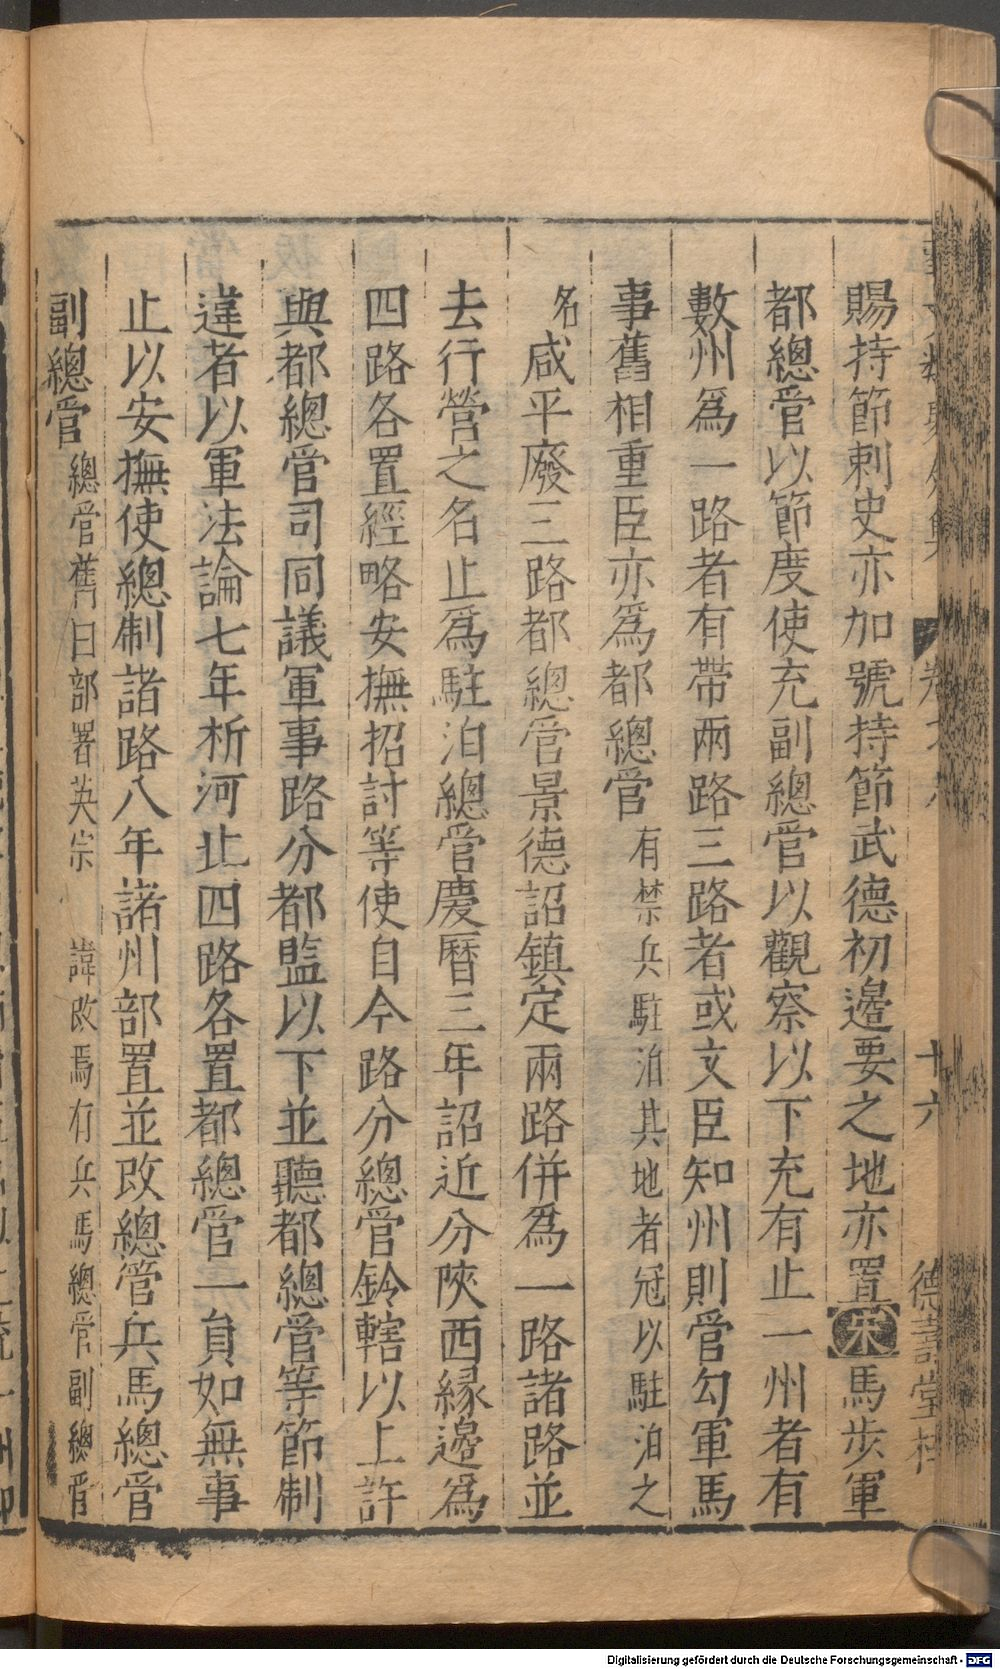 賜持節刺史亦加號持節武德初邊要之地亦置宋馬步軍
都總管以節度使充副總管以觀察以下充有止一州者有
數州爲一路者有帶兩路三路者或文臣知州則管勾軍馬
事舊相重臣亦爲都總管有禁兵駐泊其地者冠以駐泊之
名咸平廢三路都總管景德詔鎮定兩路併爲一路諸路並
去行營之名止爲駐泊總管慶曆三年詔近分陝西緣邊爲
四路各置經略安撫招討等使自今路分總管鈐轄以上許
與都總管司同議軍事路分都監以下並聽都總管等節制
違者以軍法論七年析河北四路各置都總管一員如無事
止以安撫使總制諸路八年諸州部置並改總管兵馬總管
副總管總管舊曰部署英宗 諱改焉有兵馬總管副總管
十六
德壽堂梓
Digitalisierung gefördert durch die Deutsche Forschungsgemeinschaft - DFG